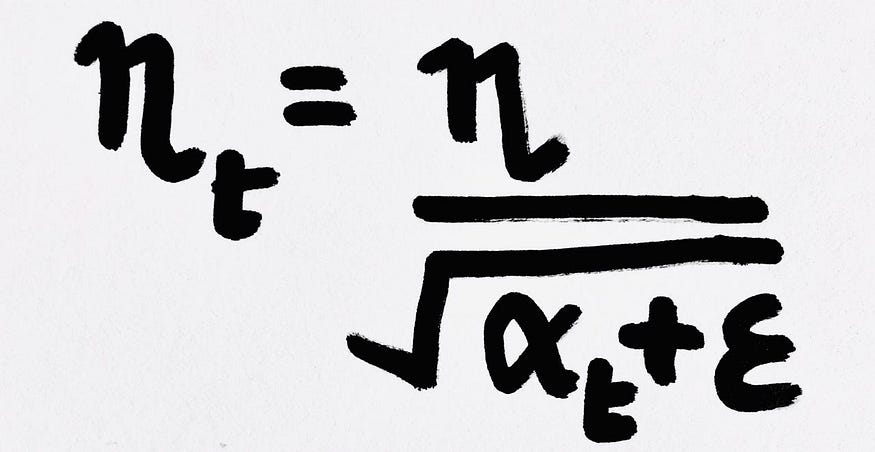 η_t = η / √(α_t + ε)